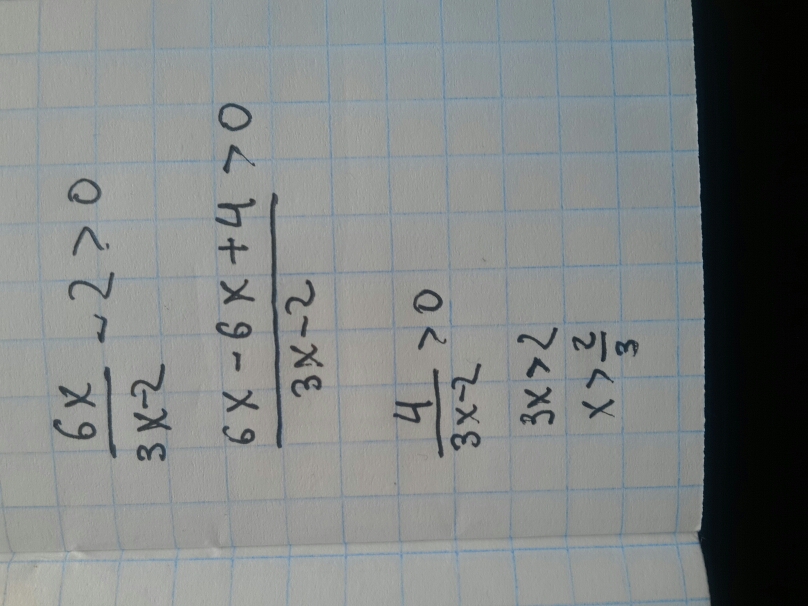 6x/(3x-2) - 2 > 0
(6x - 6x + 4)/(3x - 2) > 0
4/(3x-2) > 0
3x > 2
x > 2/3